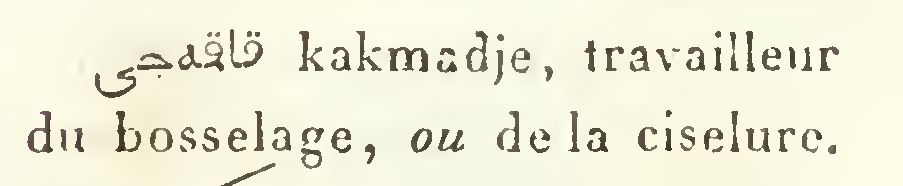 قاقمه‌جى kakmadje, travailleur
du bosselage, ou de la ciselure.